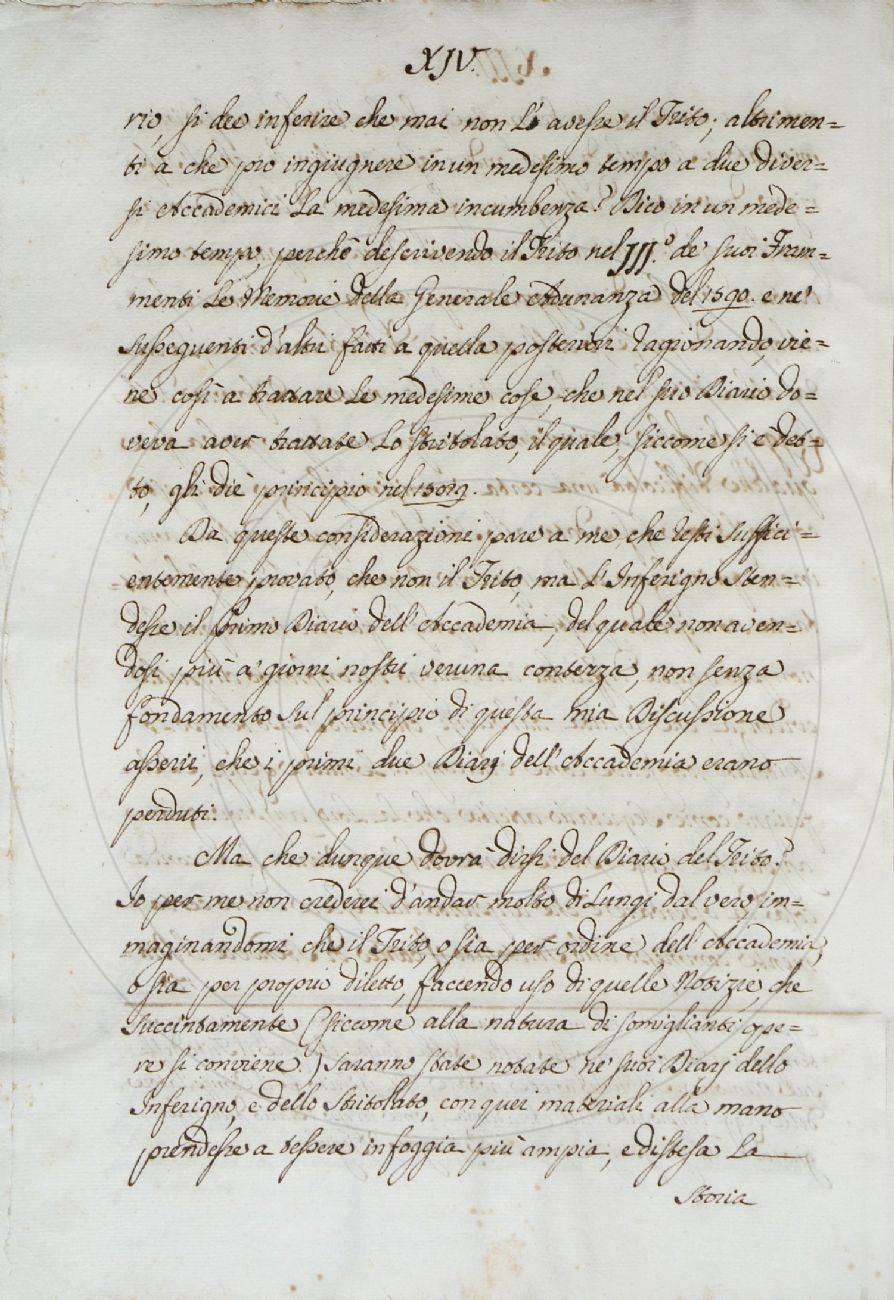 XIV.
rio, si dee inferire che mai non l'avesse il Trito; altrimen=
ti a che pro ingiugnere in un medesimo tempo a due diver=
si Accademici la medesima incumbenza? Dico in un mede=
simo tempo, perchè descrivendo il Trito nel III.º de' suoi Fram=
menti le Memorie della Generale Adunanza del 1590. e ne'
susseguenti d'altri fatti a quella posteriori ragionando, vie=
ne così a trattare le medesime cose, che nel suo Diario do=
veva aver trattate lo Stritolato, il quale, siccome si è det=
to, gli diè principio nel 1589.
Da queste considerazioni pare a me che resti suffici=
entemente provato, che non il Trito, ma l'Inferigno sten=
desse il primo Diario dell'Accademia, del quale non aven=
dosi più a' giorni nostri veruna contezza, non senza
fondamento sul principio di questa mia Discussione
asserii, che i primi due Diarj dell'Accademia erano
perduti.
Ma che dunque dovrà dirsi del Diario del Trito?
Io per me non crederei d'andar molto di lungi dal vero im=
maginandomi che il Trito, o sia per ordine dell'Accademia,
o sia per proprio diletto, faccendo uso di quelle Notizie, che
succintamente (siccome alla natura di somiglianti ope=
re si conviene) saranno state notate ne' suoi Diarj dello
Inferigno, e dello Stritolato, con quei materiali alla mano
prendesse a tessere in foggia più ampia, e distesa la
Storia